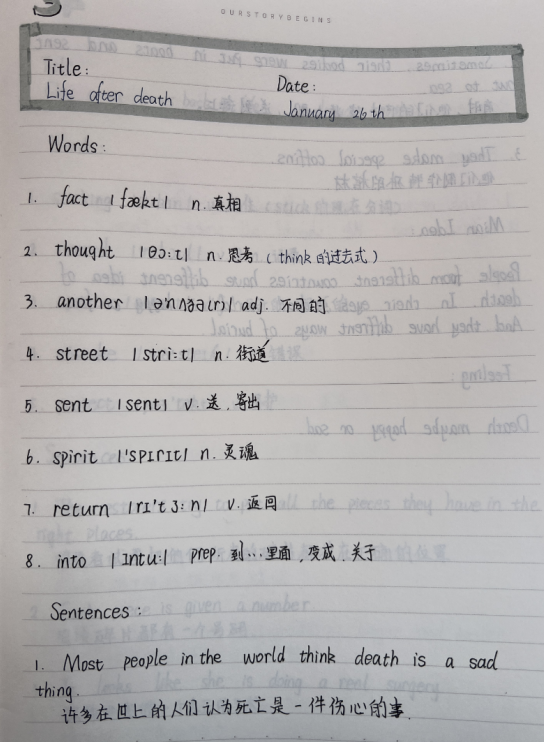 OURSTORYBEGINS
Title:
Life after death
Date:
January 26th
Words:
1. fact |fækt| n. 真相
2. thought |θɔ:t| n. 思考 (think 的过去式)
3. another |ə'nʌðə(r)| adj. 不同的
4. street |stri:t| n. 街道
5. sent |sent| v. 送,寄出
6. spirit |'spɪrɪt| n. 灵魂
7. return |rɪ'tɜ:n| v. 返回
8. into |ɪntu:| prep. 到...里面,变成.关于
Sentences:
1. Most people in the world think death is a sad
thing.
许多在世上的人们认为死亡是一件伤心的事.